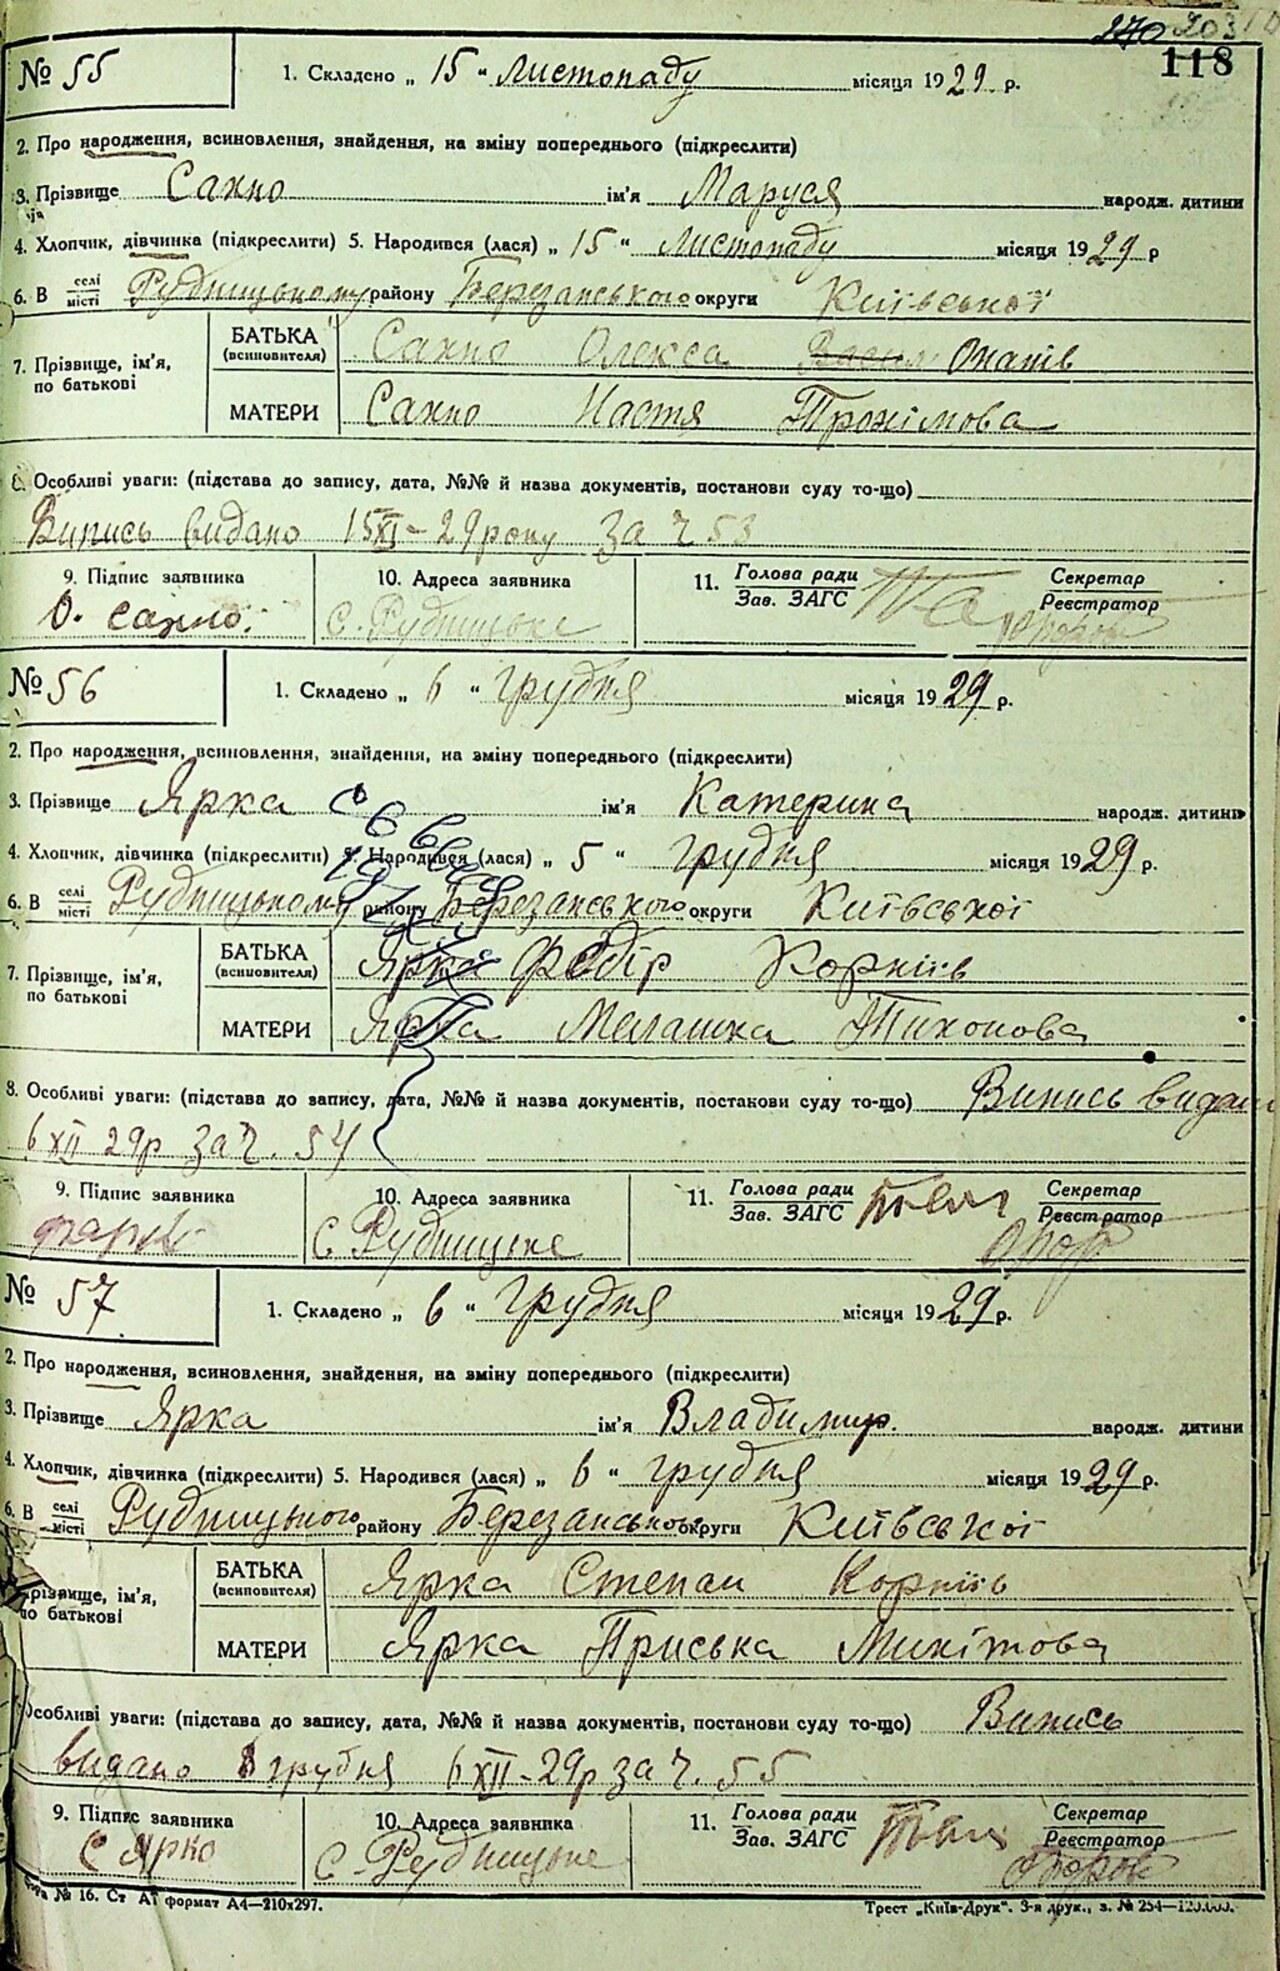 270 203
118
№ 55 1. Складено „ 15 “ листопаду місяця 1929 р.
2. Про народження, всиновлення, знайдення, на зміну попереднього (підкреслити)
3. Прізвище Сахно ім'я Маруся народж. дитини
4. Хлопчик, дівчинка (підкреслити) 5. Народився (лася) „ 15 “ листопаду місяця 1929 р
6. В селі/місті Рудницькому району Березанського округи Київської
БАТЬКА (всиновителя) Сахно Олекса Васил Гнатів
7. Прізвище, ім'я, по батькові
МАТЕРИ Сахно Настя Трохімова
8. Особливі уваги: (підстава до запису, дата, №№ й назва документів, постанови суду то-що)
Випись видано 15 XI - 29 року за ч 53
9. Підпис заявника 10. Адреса заявника 11. Голова ради Секретар
Зав. ЗАГС Реєстратор
О. сахно. С. Рудницьке
№ 56 1. Складено „ 6 “ грудня місяця 1929 р.
2. Про народження, всиновлення, знайдення, на зміну попереднього (підкреслити)
3. Прізвище Ярка ім'я Катерина народж. дитини
4. Хлопчик, дівчинка (підкреслити) 5. Народився (лася) „ 5 “ грудня місяця 1929 р.
6. В селі/місті Рудницькому району Березанського округи Київської
БАТЬКА (всиновителя) Ярка Федір Корніїв
7. Прізвище, ім'я, по батькові
МАТЕРИ Ярка Мелашка Тихонова
8. Особливі уваги: (підстава до запису, дата, №№ й назва документів, постанови суду то-що) Випись видано
6 XII 29р за ч. 54
9. Підпис заявника 10. Адреса заявника 11. Голова ради Секретар
Зав. ЗАГС Реєстратор
С Рудницьке
№ 57 1. Складено „ 6 “ грудня місяця 1929 р.
2. Про народження, всиновлення, знайдення, на зміну попереднього (підкреслити)
3. Прізвище Ярка ім'я Владимир. народж. дитини
4. Хлопчик, дівчинка (підкреслити) 5. Народився (лася) „ 6 “ грудня місяця 1929 р.
6. В селі/місті Рудницького району Березанського округи Київської
БАТЬКА (всиновителя) Ярка Степан Корніїв
Прізвище, ім'я, по батькові
МАТЕРИ Ярка Приська Микітова
Особливі уваги: (підстава до запису, дата, №№ й назва документів, постанови суду то-що) Випись
видано 6 грудня 6 XII - 29р за ч. 55
9. Підпис заявника 10. Адреса заявника 11. Голова ради Секретар
Зав. ЗАГС Реєстратор
С Ярко С. Рудницьке
№ 16. Ст А1 формат А4—210х297. Трест „Київ-Друк“. 3-я друк., з. № 254—120.000.